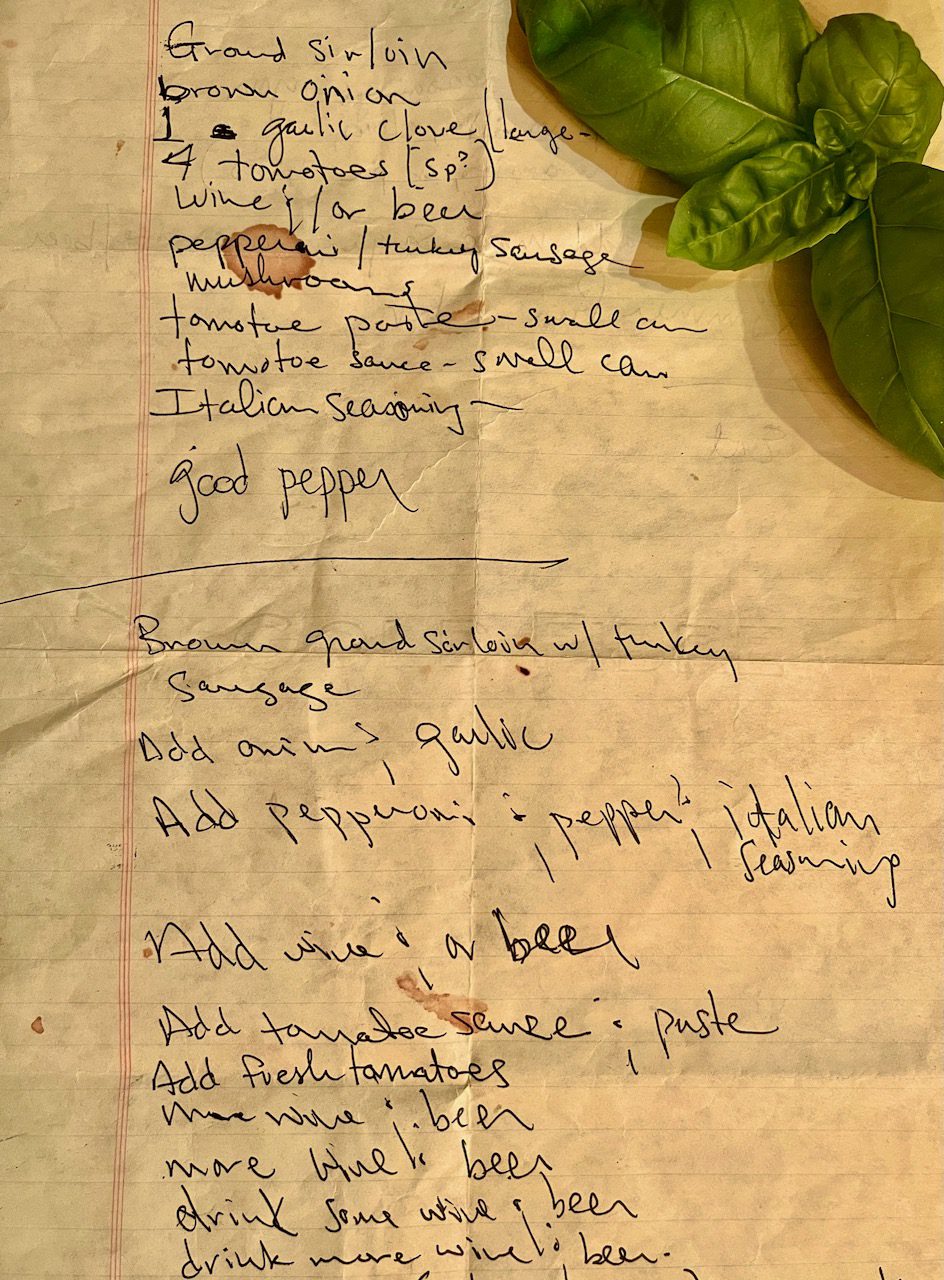 Ground sirloin
brown onion
1 garlic clove/large-
4 tomotoes [sp?]
Wine & /or beer
pepperoni / turkey sausage
mushrooms
tomotoe paste - small can
tomotoe sauce - small can
Italian Seasoning -
good pepper
Brown ground sirloin w/ turkey
Sausage
Add onions, garlic
Add pepperoni & pepper & italian
Seasoning
Add wine & or beer
Add tomatoe sauce & paste
Add fresh tomatoes
more wine & beer
more wine & beer
drink some wine & beer
drink more wine & beer.